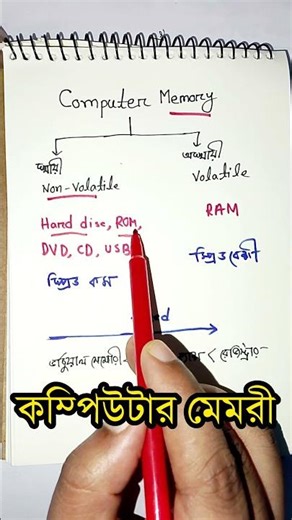 Computer Memory
স্থায়ী
অস্থায়ী
Non-Volatile
Volatile
Hard disc, ROM,
RAM
DVD, CD, USB
স্পিড বেশী
স্পিড কম
ভার্চুয়াল মেমোরী
< রেজিস্ট্রার
কম্পিউটার মেমরী